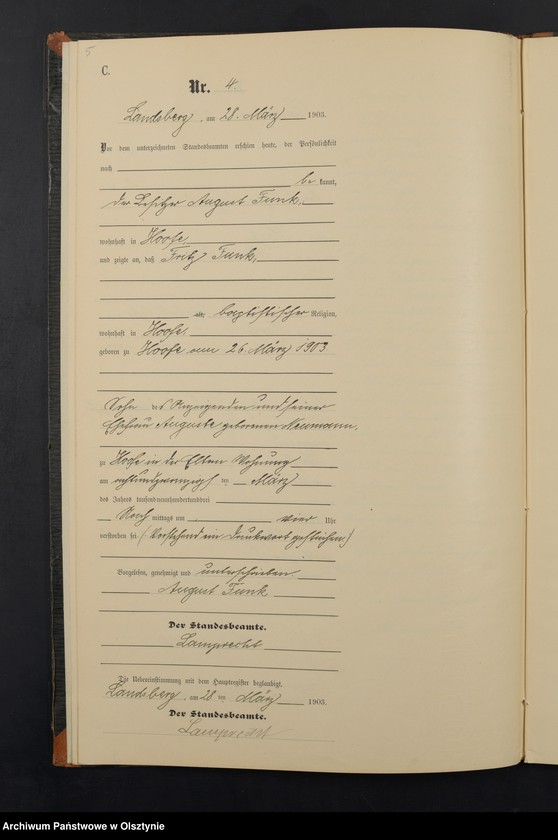 5
C.
Nr. 4.
Landsberg, am 28. März 1903.
Vor dem unterzeichneten Standesbeamten erschien heute, der Persönlichkeit
nach
be kannt,
der Besitzer August Funk,
wohnhaft in Hoofe,
und zeigte an, daß Fritz Funk,
alt, baptistischer Religion,
wohnhaft in Hoofe,
geboren zu Hoofe am 26. März 1903
Sohn des Anzeigenden und seiner
Ehefrau Auguste geborenen Neumann.
zu Hoofe in der Eltern Wohnung
am achtundzwanzigsten März
des Jahres tausendneunhundertunddrei
Nach mittags um vier Uhr
verstorben sei. (Vorstehend ein Druckwort gestrichen)
Vorgelesen, genehmigt und unterschrieben
August Funk
Der Standesbeamte.
Lamprecht
Die Uebereinstimmung mit dem Hauptregister beglaubigt.
Landsberg, am 28 ten März 1903.
Der Standesbeamte.
Lamprecht
Archiwum Państwowe w Olsztynie